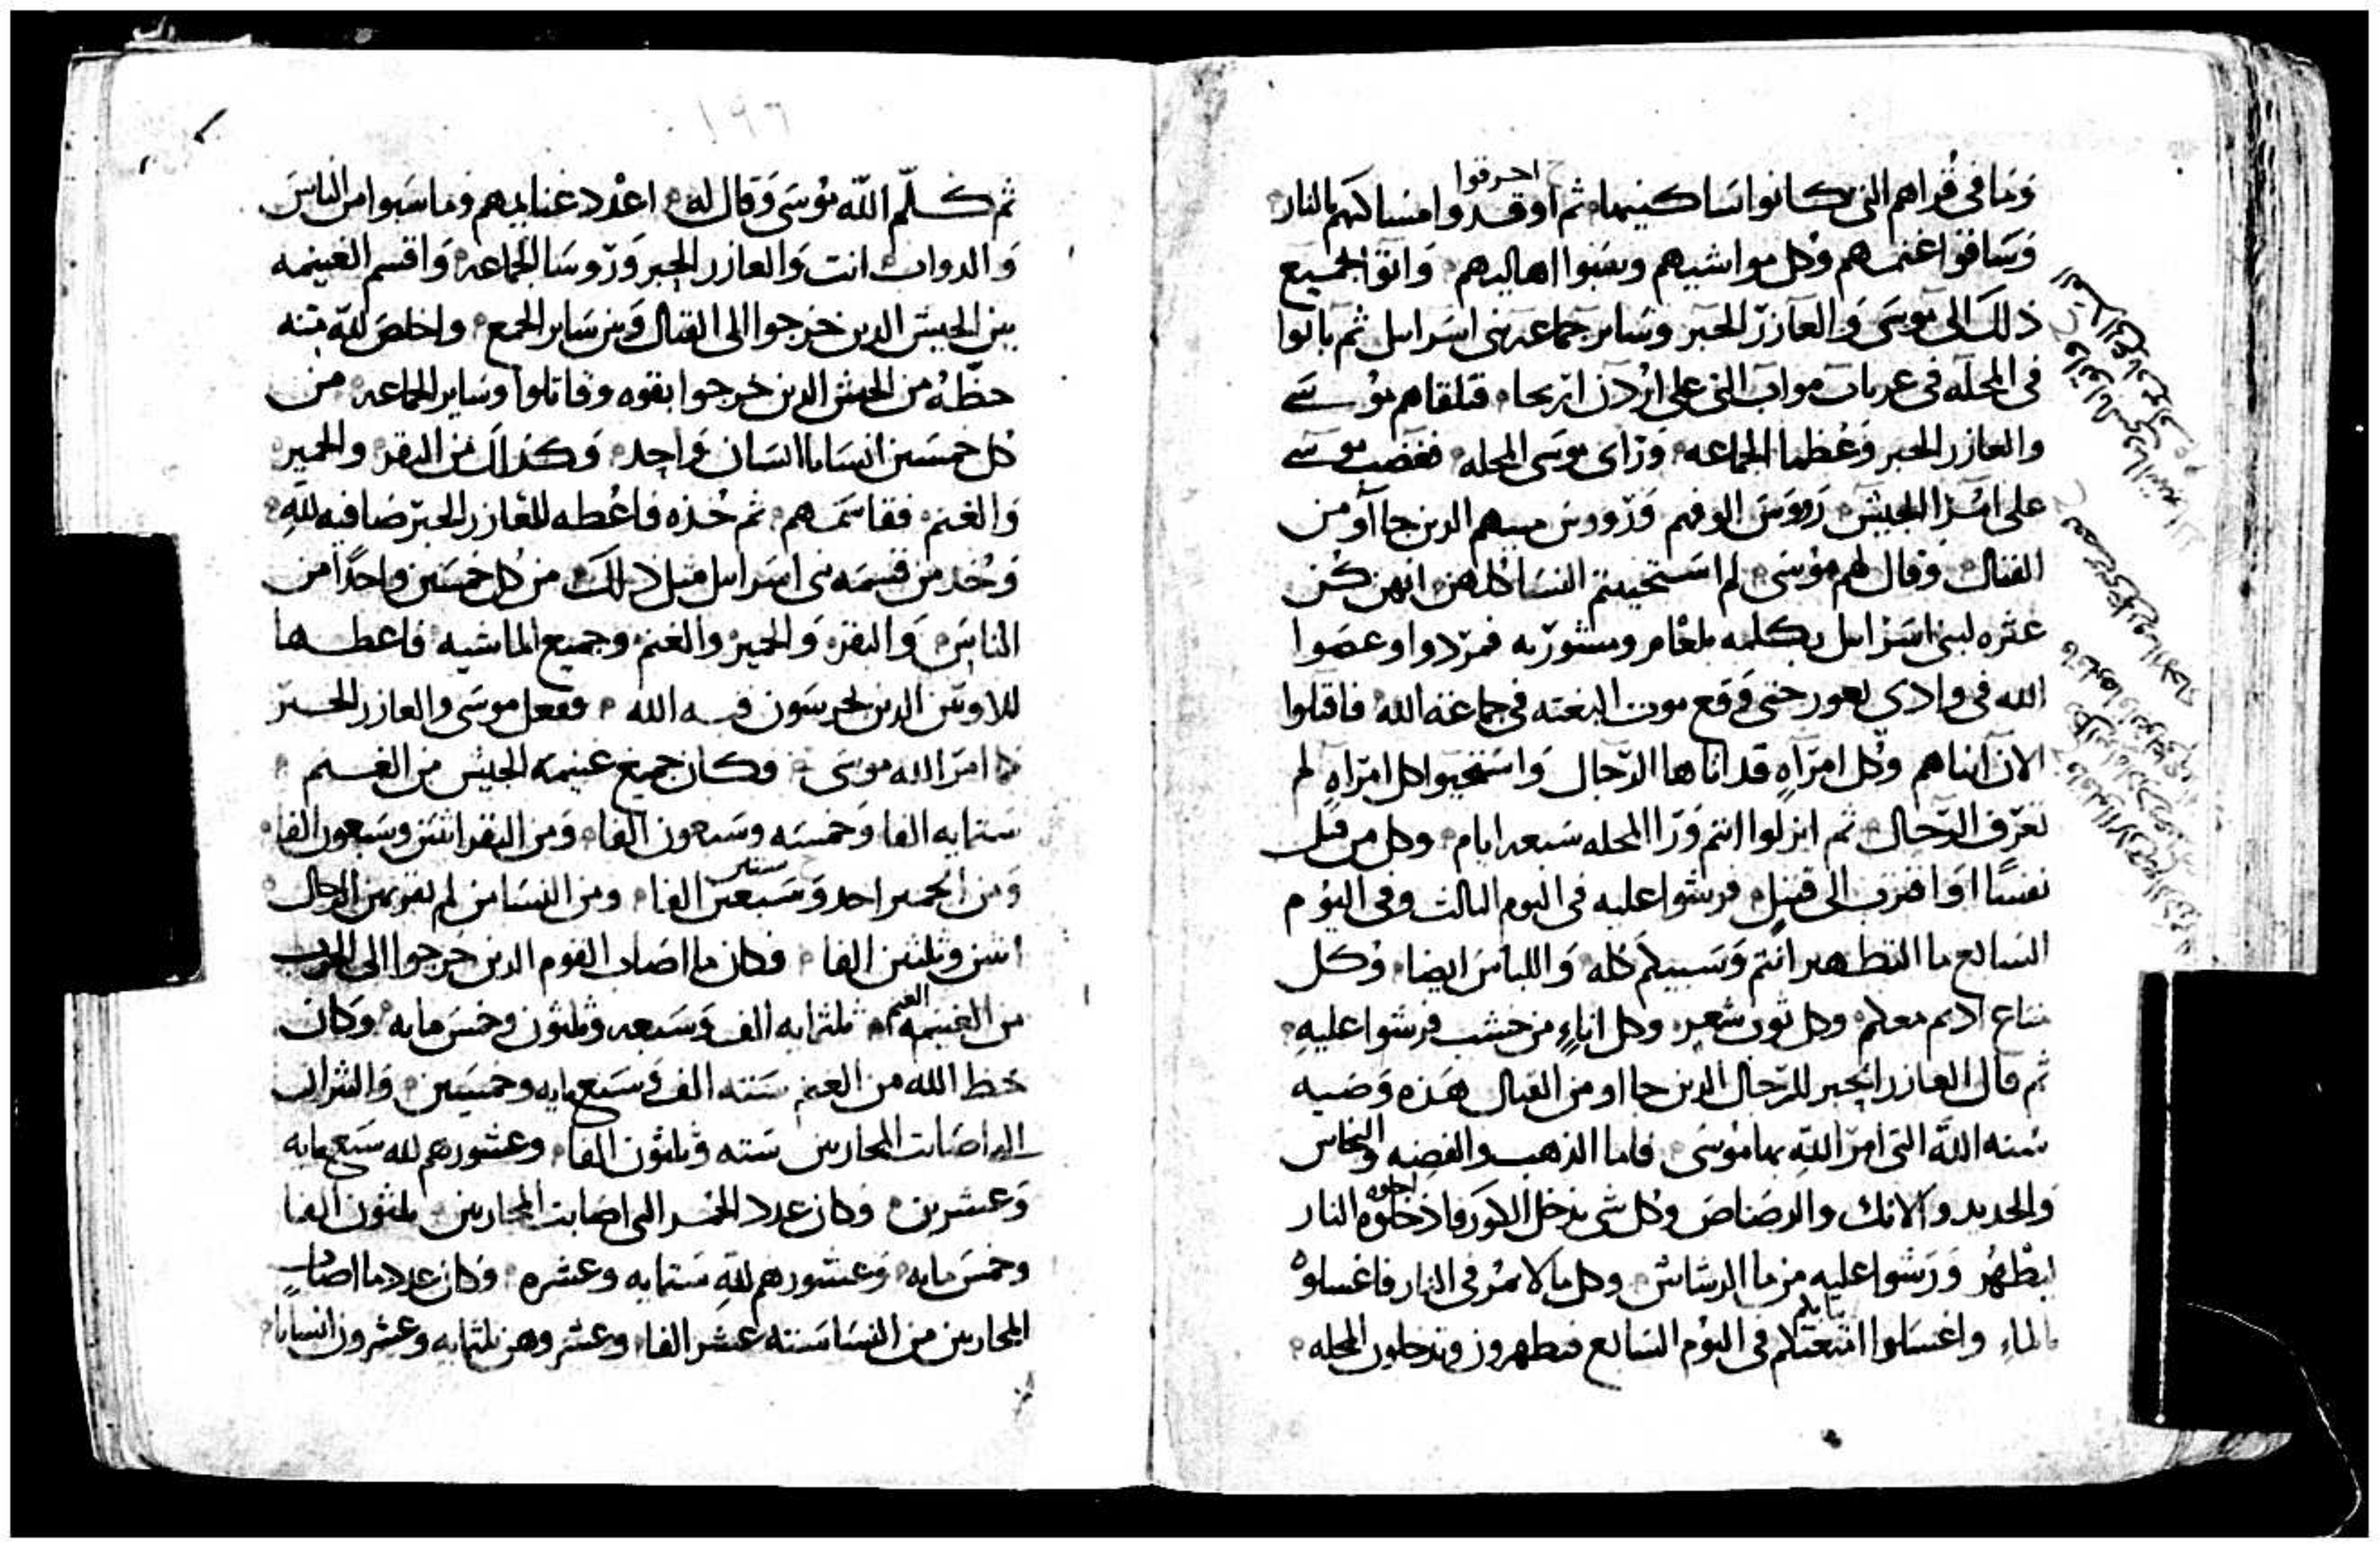 وما في قراهم التي كانوا ساكنيها ثم اوقدوا مساكنهم بالنار
احرقوا
وساقوا غنمهم وكل مواشيهم وسبوا اهاليهم واتوا بجميع
ذلك الى موسى والعازر الحبر وساير جماعه بني اسرايل ثم باتوا
في المحله في عربات مواب التي على اردن اريحا فتلقاهم موسى
والعازر الحبر وعظما الجماعه وراى موسى المحله فغضب موسى
على امرا الجيش رووس الوفهم ورووس الذين جااو من
القتال وقال لهم موسى لم استحييتم النسا كلهن انهن كن
عثره لبني اسرايل بكلمه بلعام ومشورته فمردوا وعصوا
الله في وادي بعور حتى وقع موت البغته في جماعة الله فاقتلوا
الان ابناهم وكل امراه قد اتاها الرجال واستحيوا كل امراه لم
تعرف الرجال ثم انزلوا انتم ورا المحله سبعه ايام وكل من قتل
نفسًا او اقترب الى قتيل فرشوا عليه في اليوم الثالث وفي اليوم
السابع ما التطهير انتم وسبيكم كله واللباس ايضا وكل
متاع اديم معكم وكل ثوب شعر وكل اناءٍ من خشب فرشوا عليه
ثم قال العازر الحبر للرجال الذين جااو من القتال هذه وصيه
سنه الله التي امر الله بها موسى فاما الذهب والفضه والنحاس
والحديد والانك والرصاص وكل شي يدخل الكور فادخلوه النار
ليطهر ورشوا عليه من ما الرشاش وكل ما لا يمر في النار فاغسلوه
بالماء واغسلوا امتعتكم في اليوم السابع فتطهرون وتدخلون المحله
ثيابكم
١٩٦
ثم كلّم الله موسى وقال له اعدد غنايمهم وما سبوا من الناس
والدواب انت والعازر الحبر وروسا الجماعه واقسم الغنيمه
بين الجيش الذين خرجوا الى القتال وبين ساير الجمع واخلص لله منه
حظه من الجيش الذين خرجوا بقوه وقاتلوا وساير الجماعه من
كل خمسين انسانا انسان واحد وكذلك من البقر والحمير
والغنم فقاسمهم ثم خذه فاعطه للعازر الحبر صافيه لله
وخذ من قسمه بني اسرايل مثل ذلك من كل خمسين واحدًا من
الناس والبقر والحمير والغنم وجميع الماشيه فاعطها
للاويين الذين يحرسون قبه الله ففعل موسى والعازر الحبر
كما امر الله موسى وكان جميع غنيمه الجيش من الغنم
ستمايه الفا وخمسه وسبعون الفا ومن البقر اثنين وسبعون الفا
ومن الحمير احد وسبعين الفا ومن النسا من لم يقربهن الرجال
ستين
اثنين وثلثين الفا فكان ما اصاب القوم الذين خرجوا الى الحرب
من الغنيمه ثلثمايه الف وسبعه وثلثون وخمس مايه وكان
الغنم
حظ الله من الغنم سته الف وسبع مايه وخمسين والثيران
التي اصابت المحاربين سته وثلثون الفا وعشورهم لله سبع مايه
وعشرين وكان عدد الحمر التي اصابت المحاربين ثلثون الفا
وخمس مايه وعشورهم لله ستمايه وعشره وكان عدد ما اصاب
المحاربين من النسا سته عشر الفا وعشروهن ثلثمايه وعشرون انسانا